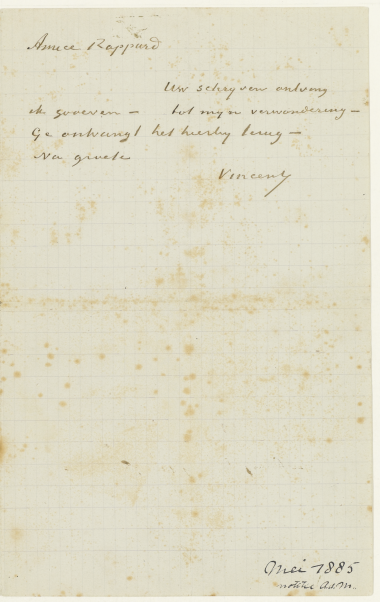 Amice Rappard
Uw schryven ontving
ik zooeven — tot myn verwondering —
Ge ontvangt het hierby terug —
Na groete
Vincent
Mei 1885
notitie A.d.M.